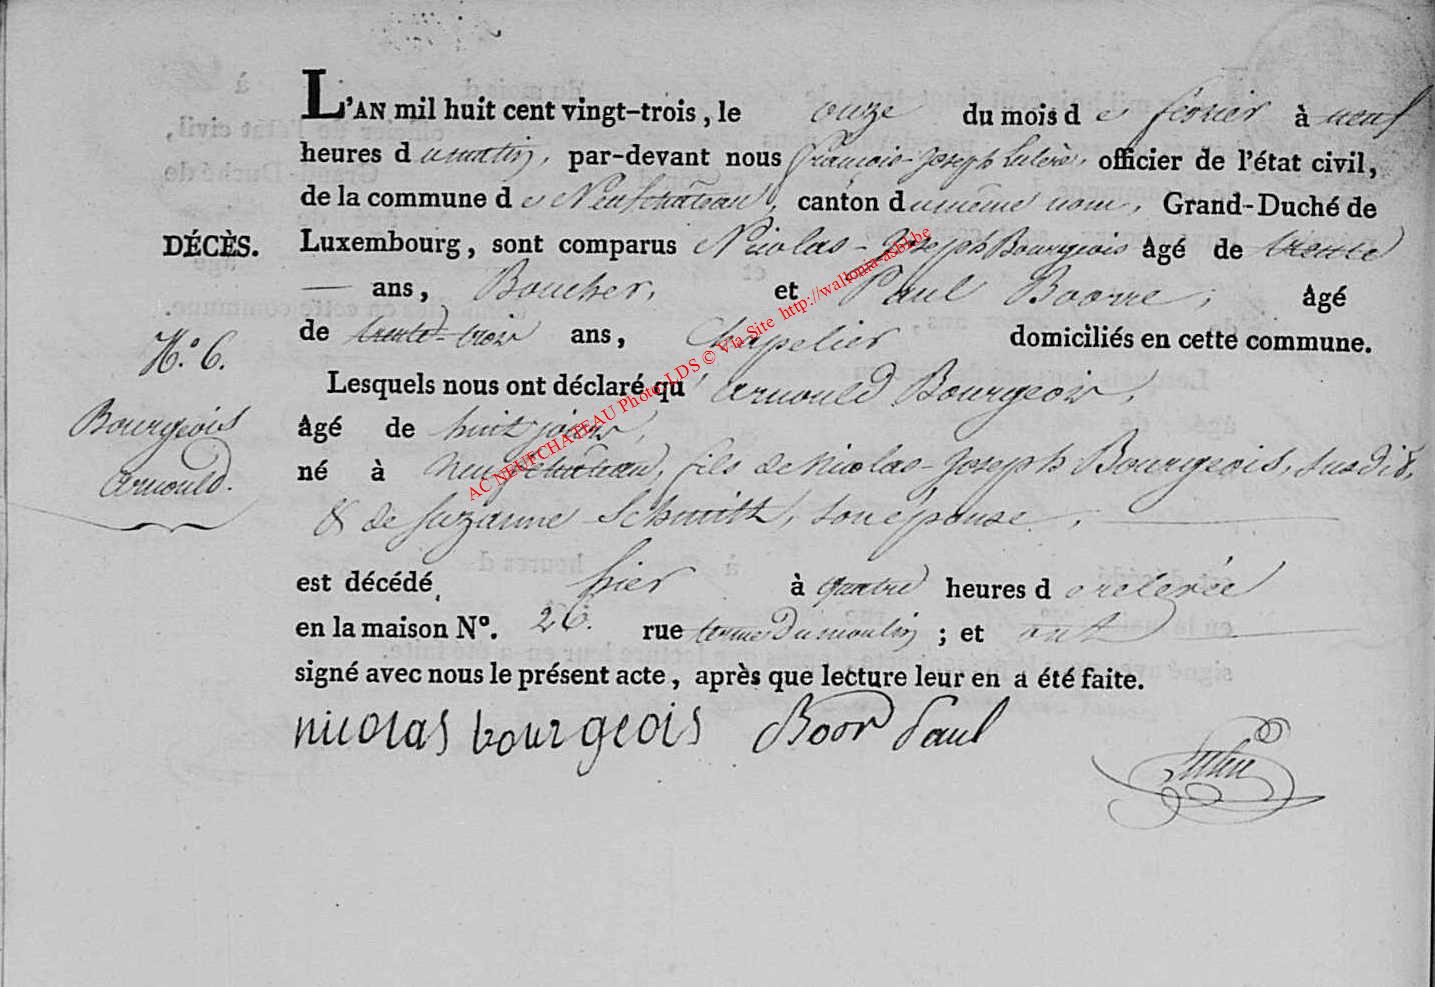 L'AN mil huit cent vingt-trois, le onze du mois de février à neuf
heures du matin, par-devant nous François-Joseph officier de l'état civil,
de la commune de Neufchâteau, canton du même nom, Grand-Duché de
DÉCÈS. Luxembourg, sont comparus Nicolas-Joseph Bourgeois âgé de trente
— ans, Boucher, et Paul âgé
de trente-trois ans, Chapelier domiciliés en cette commune.
N.º 6.
Lesquels nous ont déclaré qu'Arnould Bourgeois,
Bourgeois
Arnould.
âgé de huit jours,
né à Neufchâteau, fils de Nicolas-Joseph Bourgeois, susdit,
& de Suzanne Schmitt, son épouse.
est décédé hier à quatre heures de relevée
en la maison Nº. 26. rue du moulin ; et ont
signé avec nous le présent acte, après que lecture leur en a été faite.
nicolas bourgeois Boor Paul
AC NEUFCHATEAU Photo LDS © Via Site http://wallonia-asbl.be